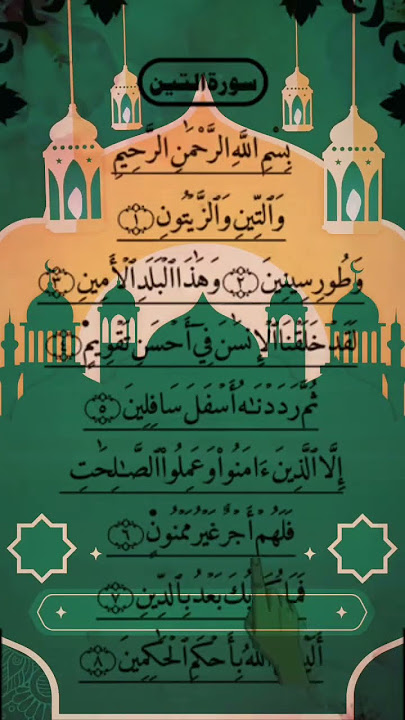 سورة التين
بِسْمِ اللَّهِ الرَّحْمَٰنِ الرَّحِيمِ
وَٱلتِّينِ وَٱلزَّيْتُونِ ١
وَطُورِ سِينِينَ ٢ وَهَٰذَا ٱلْبَلَدِ ٱلْأَمِينِ ٣
لَقَدْ خَلَقْنَا ٱلْإِنسَٰنَ فِىٓ أَحْسَنِ تَقْوِيمٍ ٤
ثُمَّ رَدَدْنَٰهُ أَسْفَلَ سَٰفِلِينَ ٥
إِلَّا ٱلَّذِينَ ءَامَنُوا۟ وَعَمِلُوا۟ ٱلصَّٰلِحَٰتِ
فَلَهُمْ أَجْرٌ غَيْرُ مَمْنُونٍ ٦
بَعْدُ بِٱلدِّينِ ٧
ٱللَّهُ بِأَحْكَمِ ٱلْحَٰكِمِينَ ٨